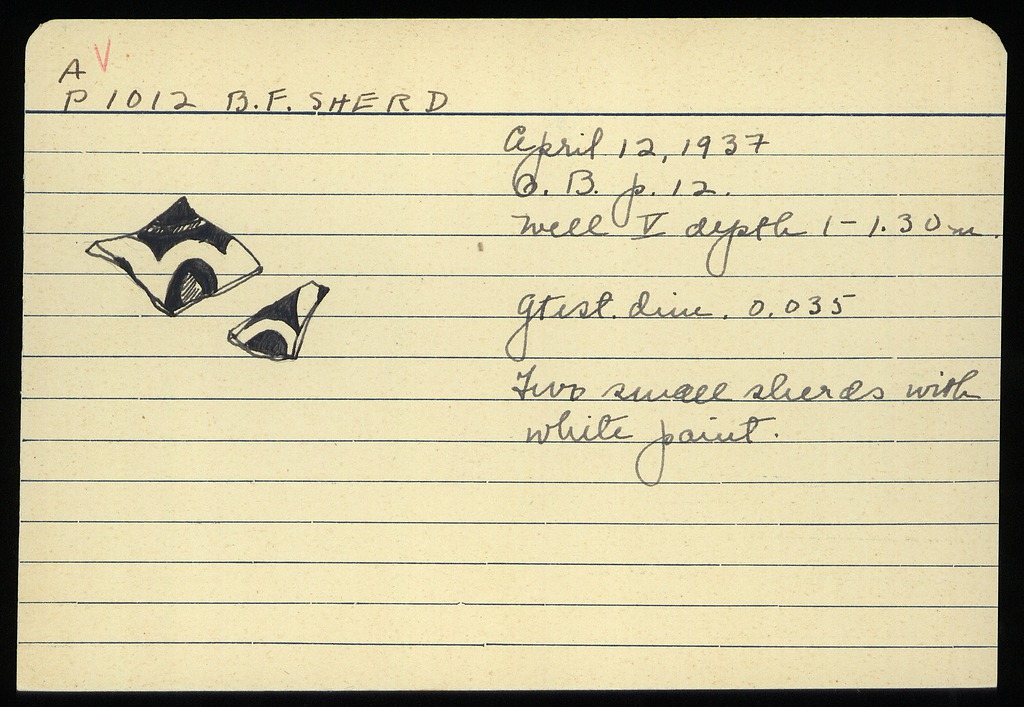 A V
P 1012 B.F. SHERD
April 12, 1937
O. B. p. 12.
Well V depth 1-1.30 m.
Gtest. dim. 0.035
Two small sherds with
white paint.